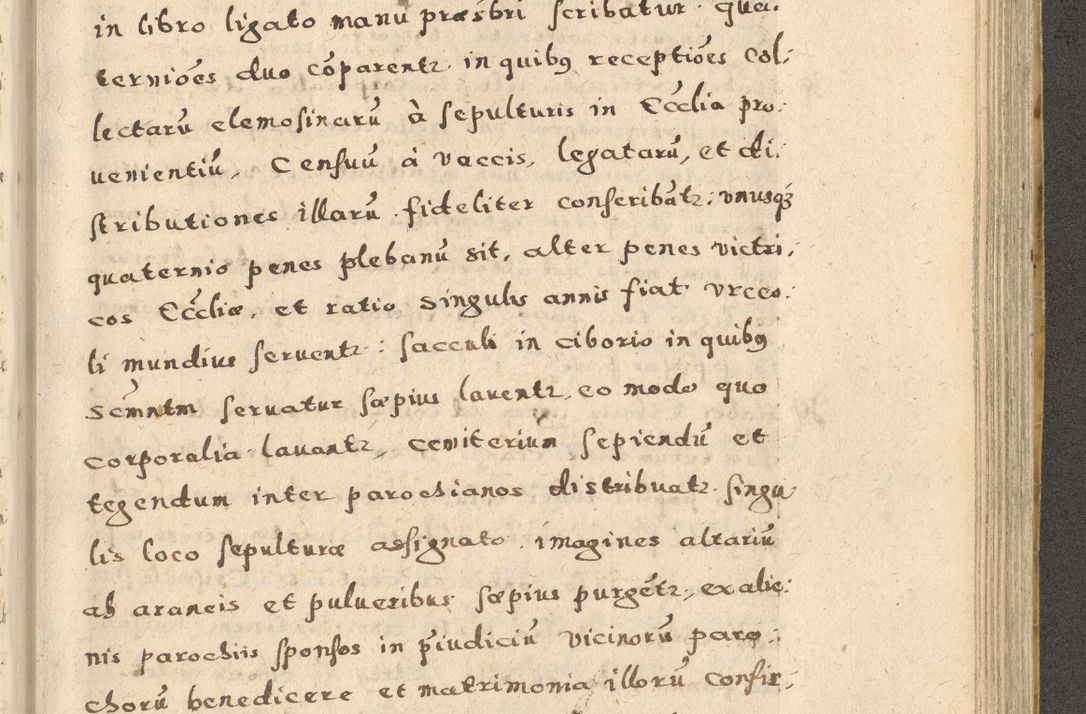 in libro ligato manu præsbri scribatur. qua:
terniões duo cõparentz in quibꝯ receptiões col:
lectarũ elemosinarũ à sepulturis in Eccl̃ia pro:
uenientiũ, Censuũ à vaccis, legatarũ, et di:
stributiones illarũ fideliter conscribãtz: vnusqꝫ
quaternio penes plebanũ sit, alter penes victri:
cos Eccl̃iæ, et ratio singulis annis fiat vrceo:
li mundius seruentz: sacculi in ciborio in quibꝯ
Scm̃ntm seruatur sæpius lauentz, eo modo quo
corporalia lauantz, cemiterium sepiendũ et
tegendum inter parochianos distribuatz singu
lis loco sepulturæ assignato. imagines altariũ
ab araneis et pulueribus sæpius purgẽtz, ex alie:
nis parochiis sponsos in p̃iudiciũ vicinorũ paro:
chorũ benedicere et matrimonia illorũ confir: